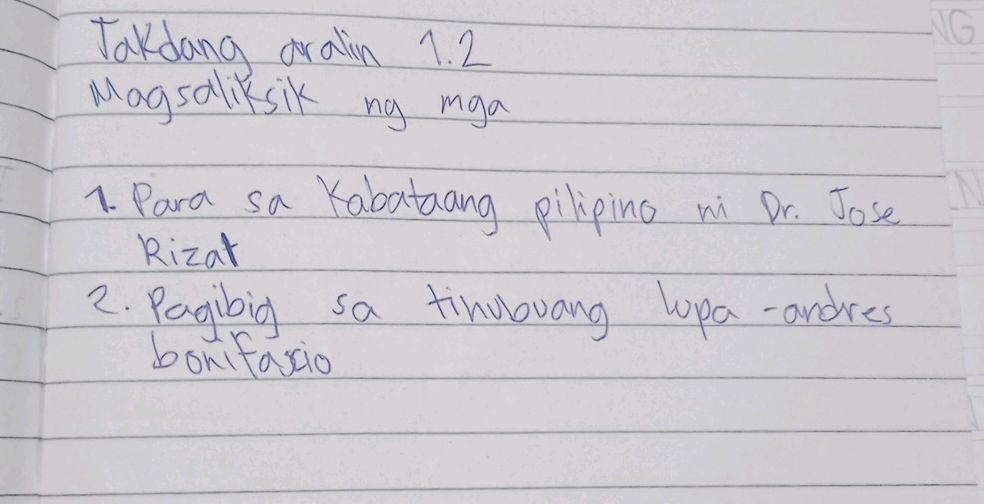 Takdang aralin 1.2
Magsaliksik ng mga
1. Para sa Kabataang pilipino ni Dr. Jose
Rizal
2. Pagibig sa tinubuang lupa -andres
bonifascio
NG